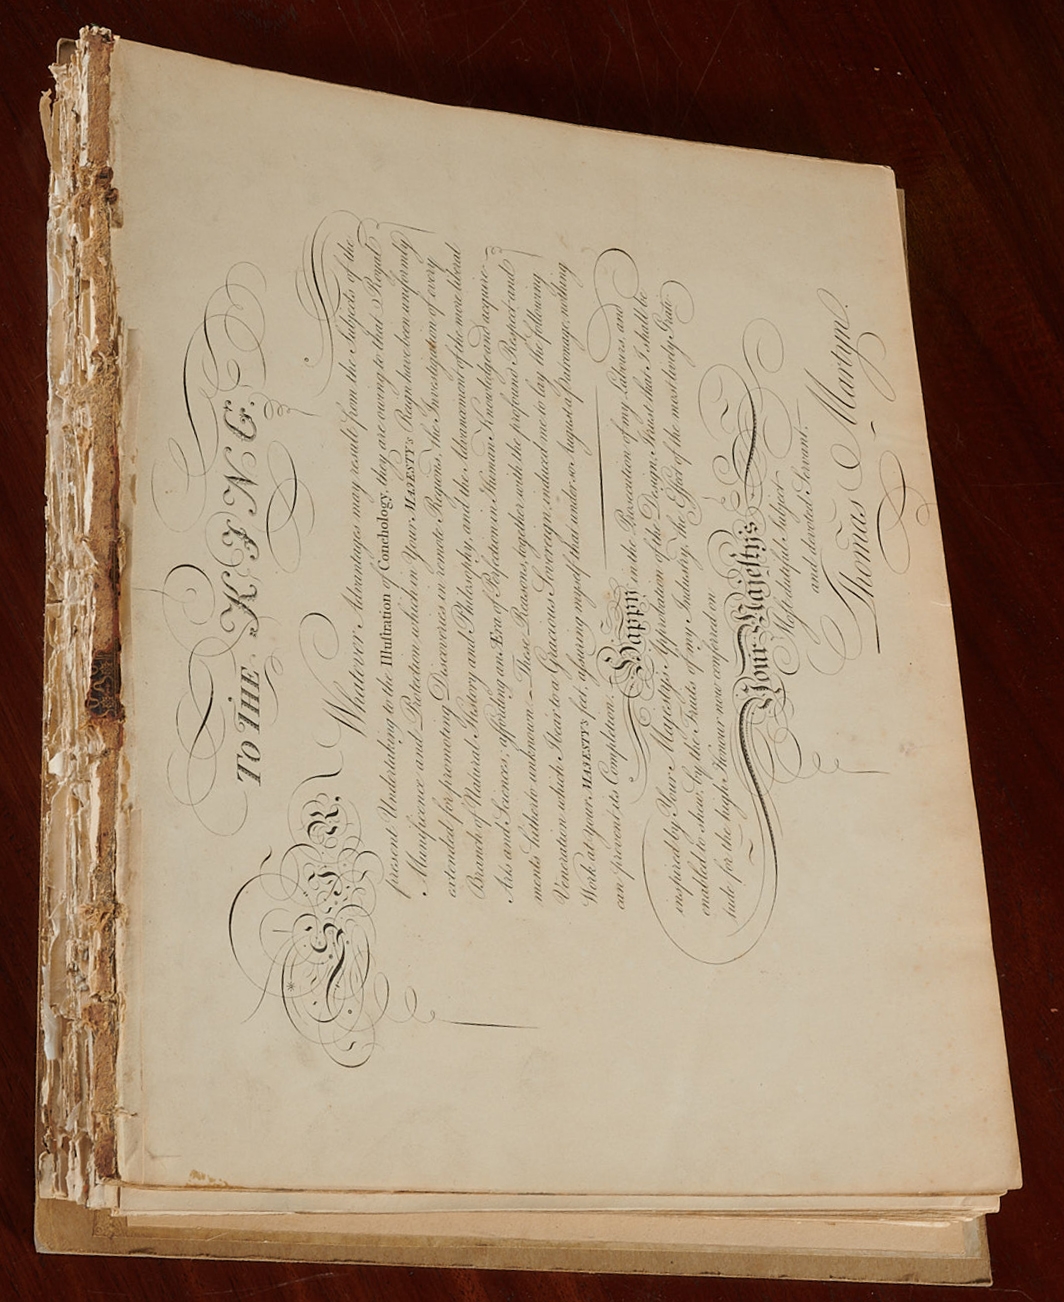 TO THE KING.
SIR.
Whatever Advantages may result from the Subjects of the
present Undertaking to the Illustration of Conchology, they are owing to that Royal
Munificence and Protection which in Your MAJESTY'S Reign have been uniformly
extended for promoting Discoveries in remote Regions, the Investigation of every
Branch of Natural History and Philosophy, and the Advancement of the more liberal
Arts and Sciences; affording an Æra of Perfection in Human Knowledge and acquire-
ments hitherto unknown. These Reasons, together with the profound Respect and
Veneration which I bear to a Gracious Sovereign, induced me to lay the following
Work at your MAJESTY'S feet, assuring myself that under so August a Patronage, nothing
can prevent its Completion.
Happy in the Prosecution of my Labours, and
inspired by Your Majesty's Approbation of the Design, I trust that I shall be
enabled to shew, by the Fruits of my Industry, the Effect of the most lively Grati-
tude for the high Honour now conferred on
Your Majesty's
Most dutiful Subject
and devoted Servant.
Thomas Martyn.